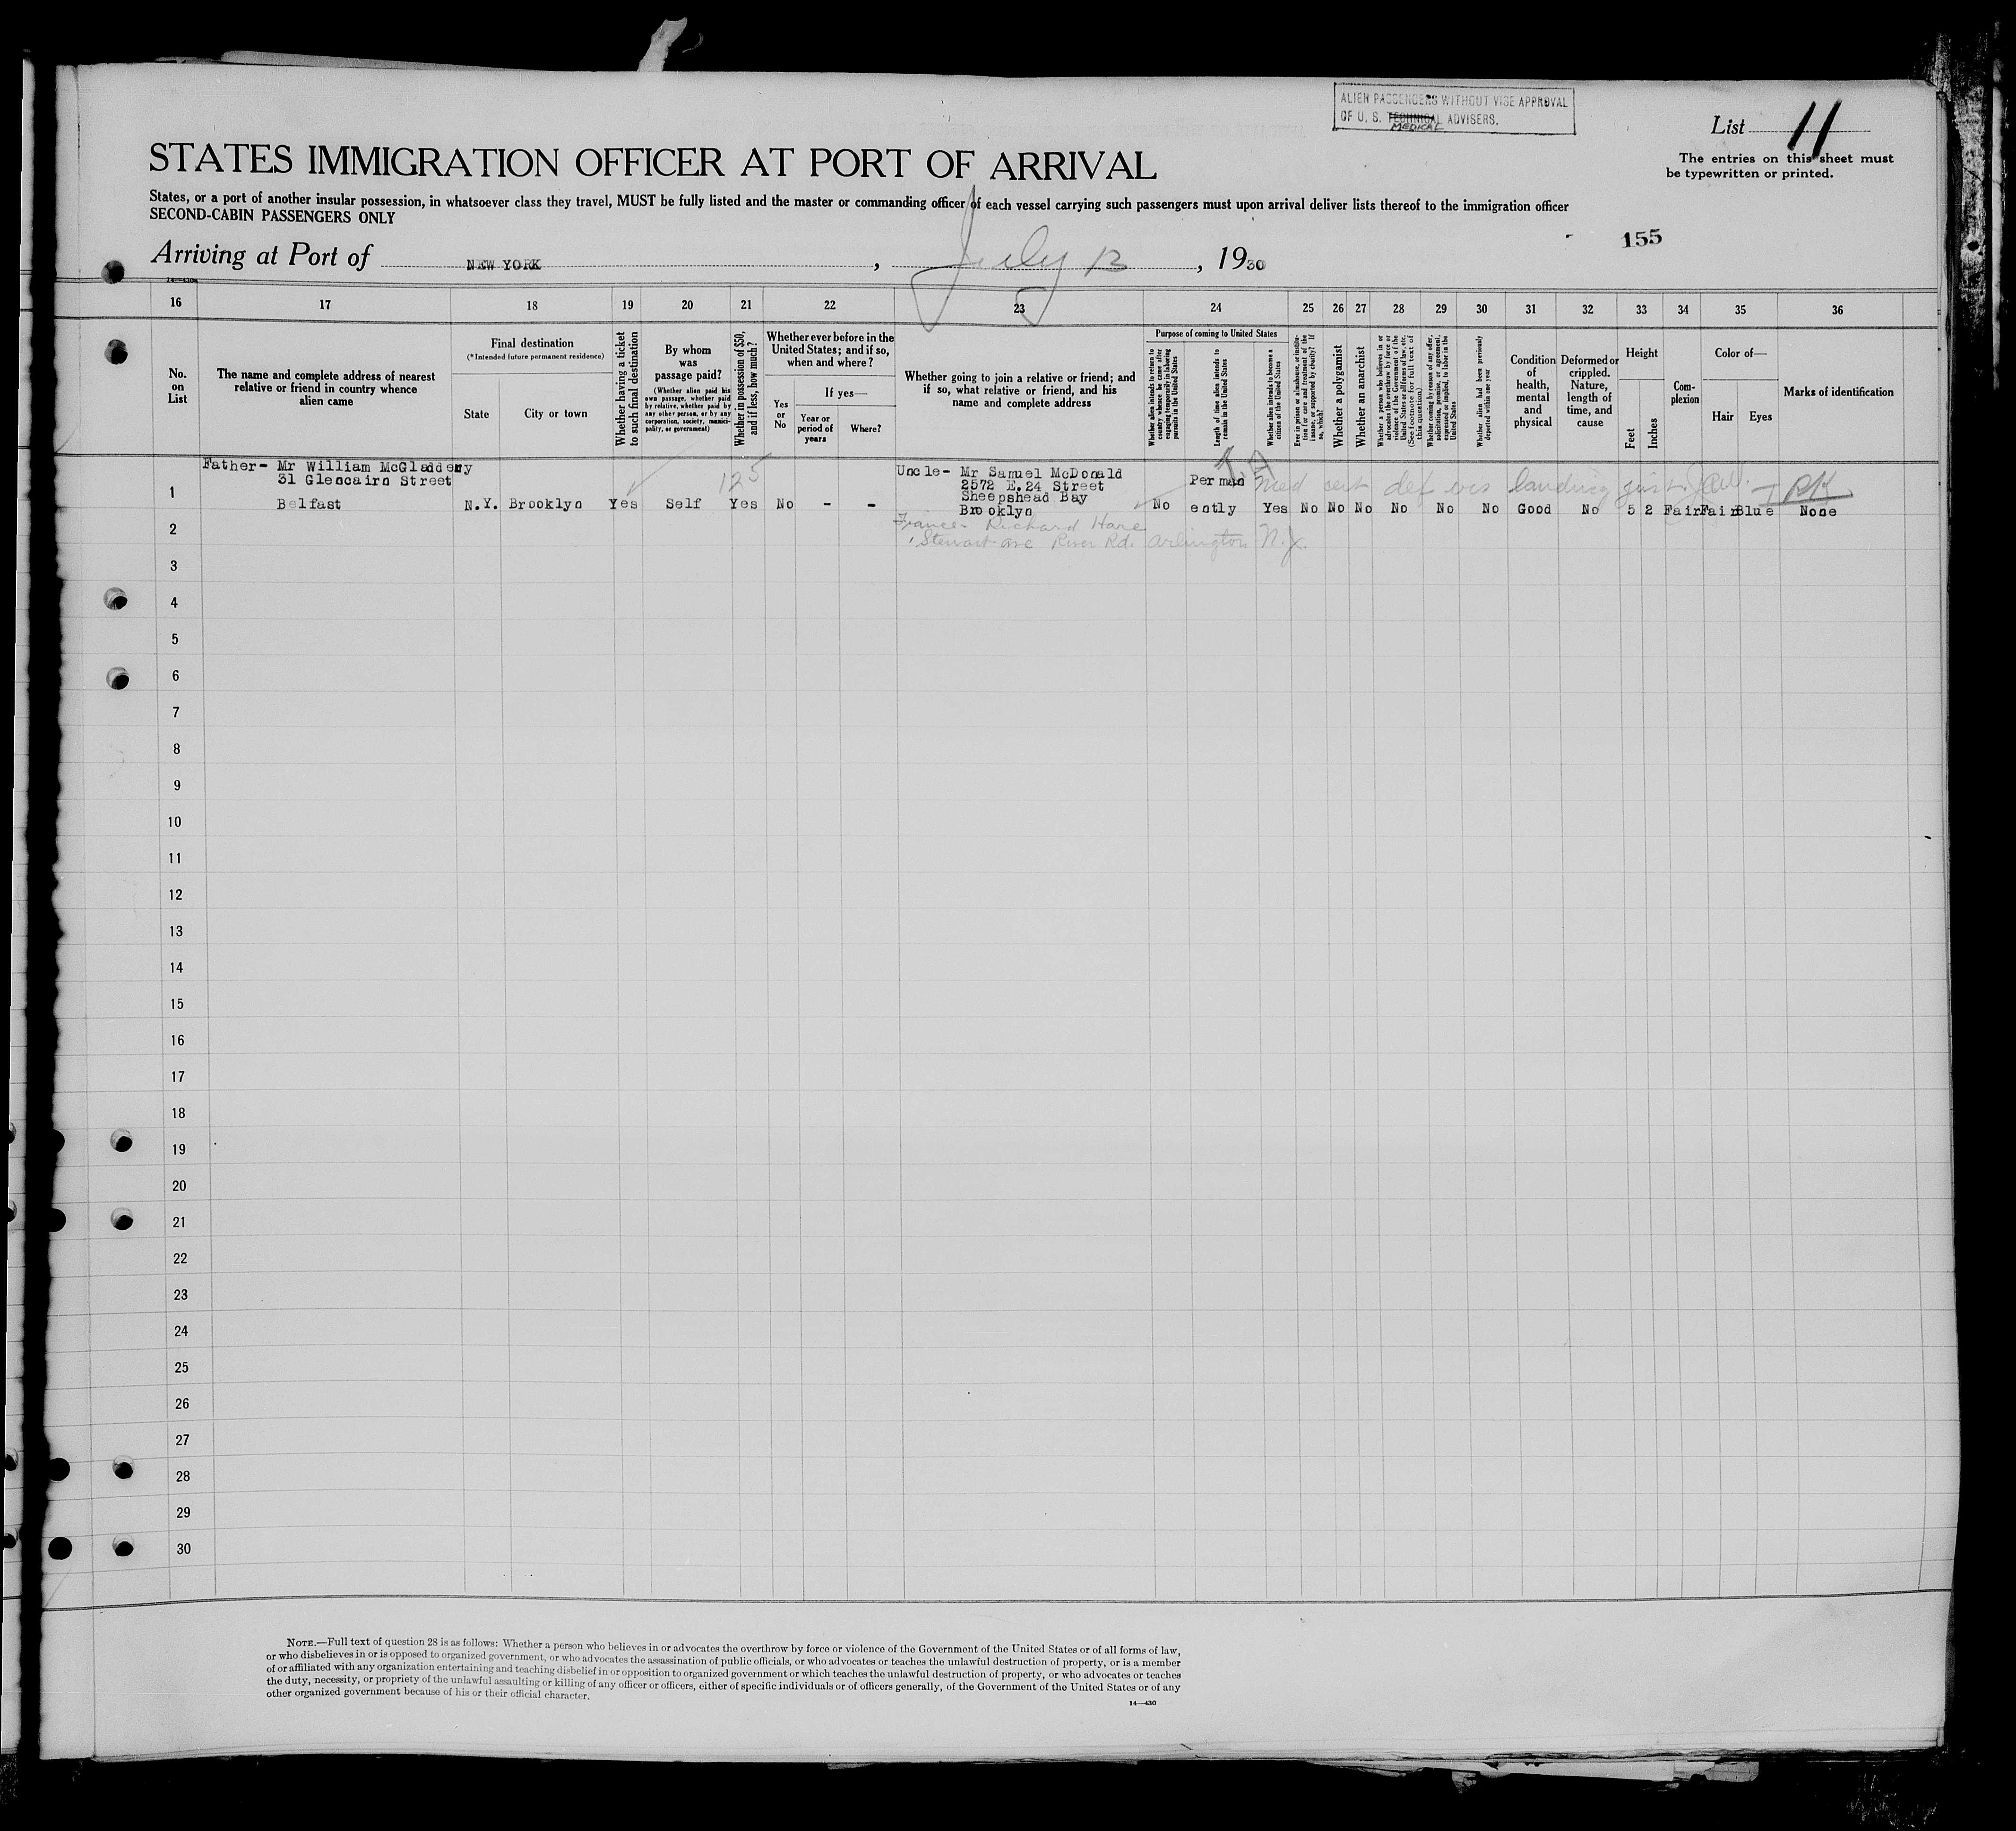 ALIEN PASSENGERS WITHOUT VISE APPROVAL
OF U. S. TECHNICAL ADVISERS.
MEDICAL
List 11
The entries on this sheet must
be typewritten or printed.
STATES IMMIGRATION OFFICER AT PORT OF ARRIVAL
States, or a port of another insular possession, in whatsoever class they travel, MUST be fully listed and the master or commanding officer of each vessel carrying such passengers must upon arrival deliver lists thereof to the immigration officer
SECOND-CABIN PASSENGERS ONLY
155
Arriving at Port of NEW YORK, July 13, 1930
14—430
16 17 18 19 20 21 22 23 24 25 26 27 28 29 30 31 32 33 34 35 36
No. on List
The name and complete address of nearest
relative or friend in country whence
alien came
Final destination
(*Intended future permanent residence)
State
City or town
Whether having a ticket
to such final destination
By whom
was
passage paid?
(Whether alien paid his
own passage, whether paid
by relative, whether paid by
any other person, or by any
corporation, society, munici-
pality, or government)
Whether in possession of $50,
and if less, how much?
Whether ever before in the
United States; and if so,
when and where?
Yes
or
No
If yes—
Year or
period of
years
Where?
Whether going to join a relative or friend; and
if so, what relative or friend, and his
name and complete address
Purpose of coming to United States
Whether alien intends to return to
country whence he came after
engaging temporarily in laboring
pursuits in the United States
Length of time alien intends to
remain in the United States
Whether alien intends to become a
citizen of the United States
Ever in prison or almshouse, or institu-
tion for care and treatment of the
insane, or supported by charity? If
so, which?
Whether a polygamist
Whether an anarchist
Whether a person who believes in or
advocates the overthrow by force or
violence of the Government of the
United States or all forms of law, etc.
(See footnote for full text of
this question)
Whether coming by reason of any offer,
solicitation, promise, or agreement,
expressed or implied, to labor in the
United States
Whether alien had been previously
deported within one year
Condition
of
health,
mental
and
physical
Deformed or
crippled.
Nature,
length of
time, and
cause
Height
Feet
Inches
Com-
plexion
Color of—
Hair
Eyes
Marks of identification
1
Father- Mr William McGladdery
31 Glencairn Street
Belfast
N.Y. Brooklyn Yes Self 125 Yes No - -
Uncle- Mr Samuel McDonald
2572 E.24 Street
Sheepshead Bay
Brooklyn
No Perman
ently Yes No No No No No No Good No 5 2 Fair Fair Blue None
Med cert def vis landing
RK
2
Richard Hare
Stewart ave River Rd. Arlington N.J.
3
4
5
6
7
8
9
10
11
12
13
14
15
16
17
18
19
20
21
22
23
24
25
26
27
28
29
30
NOTE.—Full text of question 28 is as follows: Whether a person who believes in or advocates the overthrow by force or violence of the Government of the United States or of all forms of law,
or who disbelieves in or is opposed to organized government, or who advocates the assassination of public officials, or who advocates or teaches the unlawful destruction of property, or is a member
of or affiliated with any organization entertaining and teaching disbelief in or opposition to organized government or which teaches the unlawful destruction of property, or who advocates or teaches
the duty, necessity, or propriety of the unlawful assaulting or killing of any officer or officers, either of specific individuals or of officers generally, of the Government of the United States or of any
other organized government because of his or their official character.
14—430